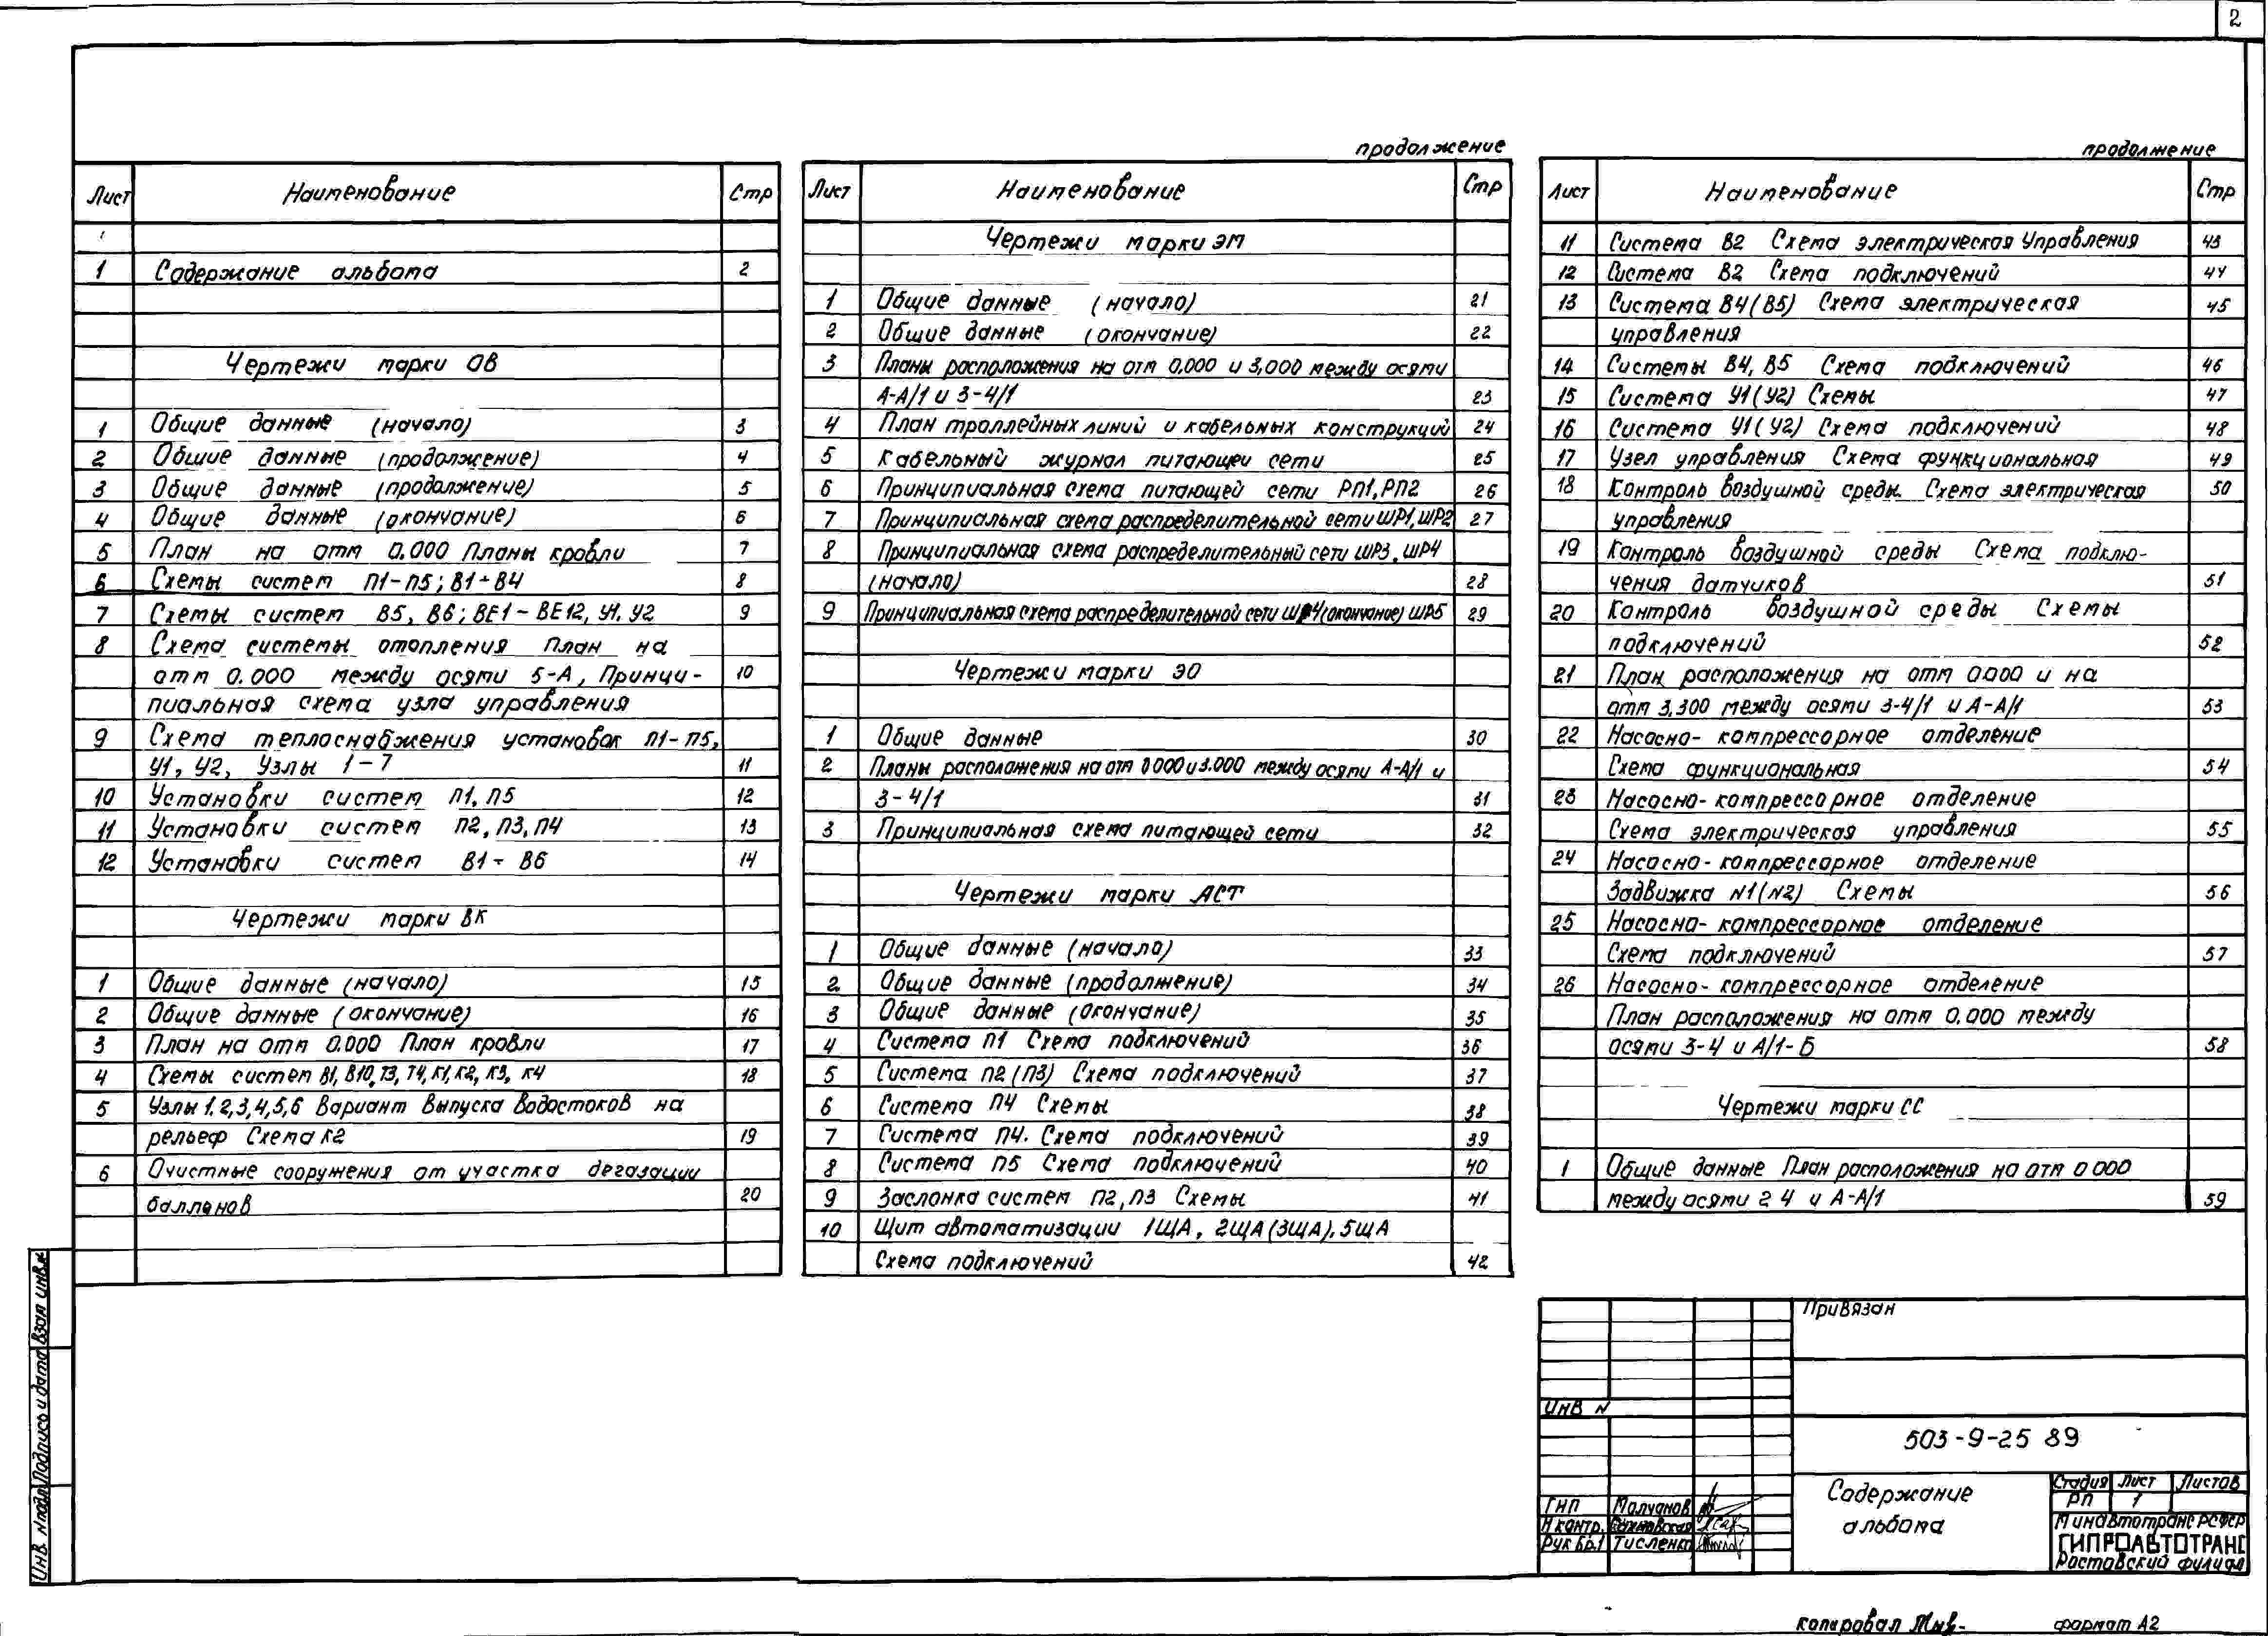 2
Лист Наименование Стр
1 Содержание альбома 2
Чертежи марки ОВ
1 Общие данные (начало) 3
2 Общие данные (продолжение) 4
3 Общие данные (продолжение) 5
4 Общие данные (окончание) 6
5 План на отм 0.000 Планы кровли 7
6 Схемы систем П1-П5; В1÷В4 8
7 Схемы систем В5, В6; ВЕ1-ВЕ12, У1, У2 9
8 Схема системы отопления План на
отм 0.000 между осями Б-А, Принци- 10
пиальная схема узла управления
9 Схема теплоснабжения установок П1-П5,
У1, У2, Узлы 1-7 11
10 Установки систем П1, П5 12
11 Установки систем П2, П3, П4 13
12 Установки систем В1÷В6 14
Чертежи марки ВК
1 Общие данные (начало) 15
2 Общие данные (окончание) 16
3 План на отм 0.000 План кровли 17
4 Схемы систем В1, В10, Т3, Т4, К1, К2, К3, К4 18
5 Узлы 1,2,3,4,5,6 Вариант выпуска водостоков на
рельеф Схема К2 19
6 Очистные сооружения от участка дегазации
баллонов 20
продолжение
Лист Наименование Стр
Чертежи марки ЭМ
1 Общие данные (начало) 21
2 Общие данные (окончание) 22
3 Планы расположения на отм 0,000 и 3,000 между осями
А-А/1 и 3-4/1 23
4 План троллейных линий и кабельных конструкций 24
5 Кабельный журнал питающей сети 25
6 Принципиальная схема питающей сети РП1, РП2 26
7 Принципиальная схема распределительной сети ШР1, ШР2 27
8 Принципиальная схема распределительный сети ШР3, ШР4
(начало) 28
9 Принципиальная схема распределительной сети ШР4(окончание) ШР5 29
Чертежи марки ЭО
1 Общие данные 30
2 Планы расположения на отм 0000 и 3.000 между осями А-А/1 и
3-4/1 31
3 Принципиальная схема питающей сети 32
Чертежи марки АСТ
1 Общие данные (начало) 33
2 Общие данные (продолжение) 34
3 Общие данные (окончание) 35
4 Система П1 Схема подключений 36
5 Система П2 (П3) Схема подключений 37
6 Система П4 Схемы 38
7 Система П4. Схема подключений 39
8 Система П5 Схема подключений 40
9 Заслонка систем П2, П3 Схемы 41
10 Щит автоматизации 1ЩА, 2ЩА (3ЩА), 5ЩА
Схема подключений 42
продолжение
Лист Наименование Стр
11 Система В2 Схема электрическая Управления 43
12 Система В2 Схема подключений 44
13 Система В4 (В5) Схема электрическая 45
управления
14 Системы В4, В5 Схема подключений 46
15 Система У1 (У2) Схемы 47
16 Система У1 (У2) Схема подключений 48
17 Узел управления Схема функциональная 49
18 Контроль воздушной среды. Схема электрическая 50
управления
19 Контроль воздушной среды Схема подклю-
чения датчиков 51
20 Контроль воздушной среды Схемы
подключений 52
21 План расположения на отм 0.000 и на
отм 3,300 между осями 3-4/1 и А-А/1 53
22 Насосно-компрессорное отделение
Схема функциональная 54
23 Насосно-компрессорное отделение
Схема электрическая управления 55
24 Насосно-компрессорное отделение
Задвижка N1 (N2) Схемы 56
25 Насосно-компрессорное отделение
Схема подключений 57
26 Насосно-компрессорное отделение
План расположения на отм 0,000 между
осями 3-4 и А/1-Б 58
Чертежи марки СС
1 Общие данные План расположения на отм 0000
между осями 2 4 и А-А/1 59
Взам инв.н
Подпись и дата
Инв. N подл
Привязан
Инв N
503-9-25 89
Содержание
альбома
Стадия Лист Листов
РП 1
ГИП Молчанов
Н контр.
Рук бр.1 Тисленко
Минавтотранс РСФСР
ГИПРОАВТОТРАНС
Ростовский филиал
копировал
формат А2